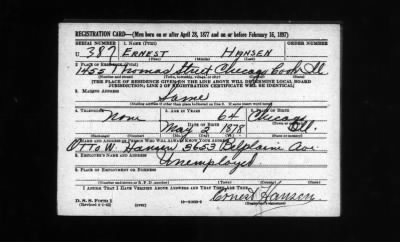 REGISTRATION CARD—(Men born on or after April 28, 1877 and on or before February 16, 1897)
SERIAL NUMBER 1. NAME (Print)
U 387 ERNEST HANSEN
(First) (Middle) (Last)
2. PLACE OF RESIDENCE (Print)
1455 Thomas Street Chicago Cook Ill
(Number and street) (Town, township, village, or city) (County) (State)
[THE PLACE OF RESIDENCE GIVEN ON THE LINE ABOVE WILL DETERMINE LOCAL BOARD
JURISDICTION; LINE 2 OF REGISTRATION CERTIFICATE WILL BE IDENTICAL]
3. MAILING ADDRESS
Same
[Mailing address if other than place indicated on line 2. If same insert word same]
4. TELEPHONE 5. AGE IN YEARS 6. PLACE OF BIRTH
None 64 Chicago
DATE OF BIRTH
May 2 1878 Ill.
7. NAME AND ADDRESS OF PERSON WHO WILL ALWAYS KNOW YOUR ADDRESS
Otto W. Hansen 3653 Belplaine Ave
8. EMPLOYER'S NAME AND ADDRESS
Unemployed
9. PLACE OF EMPLOYMENT OR BUSINESS
(Number and street or R. F. D. number) (Town) (County) (State)
I AFFIRM THAT I HAVE VERIFIED ABOVE ANSWERS AND THAT THEY ARE TRUE.
D. S. S. Form 1
(Revised 4-1-42) (over) Ernest Hansen